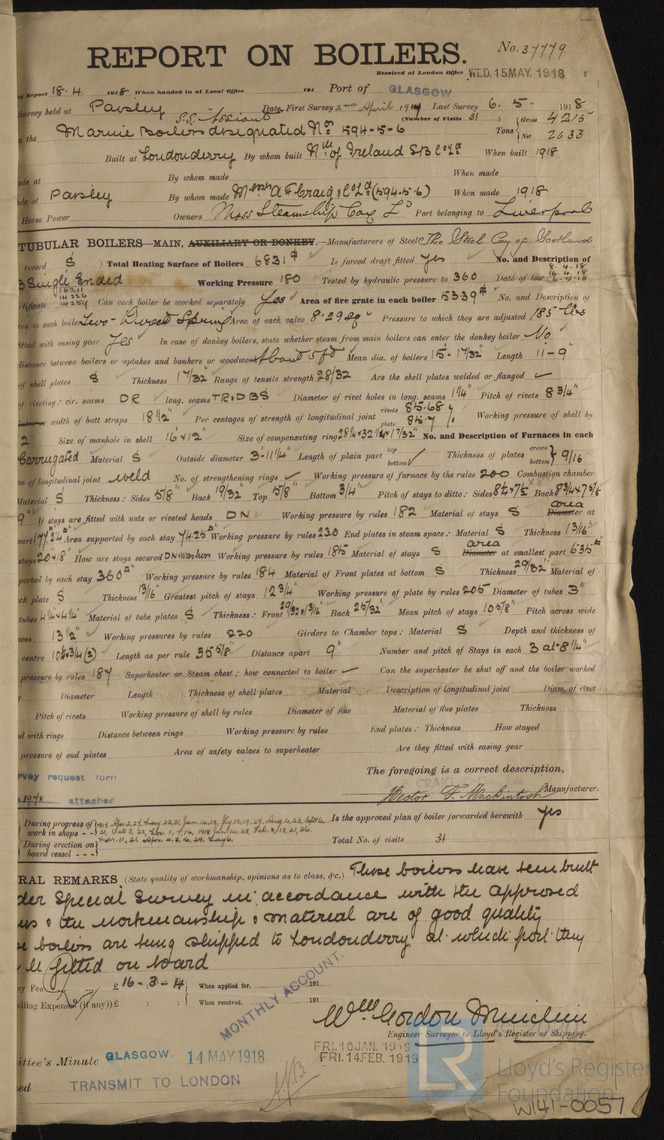 REPORT ON BOILERS.
No. 37779
Received at London Office WED. 15 MAY. 1918
Report 18.4. 1918 When handed in at Local Office 191 Port of GLASGOW
Survey held at Paisley Date, First Survey 2nd April 1917 Last Survey 6. 5. 1918
S.S. (Number of Visits 31) Gross 4215
the Marine Boilers designated Nos. 594-5-6 Tons Net 2633
Built at Londonderry By whom built Nth of Ireland S B Co Ld When built 1918
By whom made When made
at Paisley By whom made Messrs A F Craig & Co Ld (594-5-6) When made 1918
Horse Power Owners Moss Steamship Coy Ld Port belonging to Liverpool
TUBULAR BOILERS—MAIN, AUXILIARY OR DONKEY.—Manufacturers of Steel The Steel Coy of Scotland
record S Total Heating Surface of Boilers 6831 Is forced draft fitted yes No. and Description of
3 Single Ended Working Pressure 180 Tested by hydraulic pressure to 360 Date of test
Can each boiler be worked separately Yes Area of fire grate in each boiler No. and Description of
to each boiler Two - Direct Spring Area of each valve 8.29 sq" Pressure to which they are adjusted 185 lbs
fitted with easing gear Yes In case of donkey boilers, state whether steam from main boilers can enter the donkey boiler No
distance between boilers or uptakes and bunkers or woodwork About 5 ft Mean dia. of boilers 15'-17/32" Length 11-9"
of shell plates S Thickness 1 7/32" Range of tensile strength 28/32 Are the shell plates welded or flanged
of riveting: cir. seams DR long. seams TR.DBS Diameter of rivet holes in long. seams 1 1/4" Pitch of rivets 8 3/4"
width of butt straps 18 1/2" Per centages of strength of longitudinal joint rivets 85.68 plate 85.7 % Working pressure of shell by
Size of manhole in shell 16"x12" Size of compensating ring No. and Description of Furnaces in each
Corrugated Material S Outside diameter 3-11 1/4" Length of plain part top bottom Thickness of plates crown bottom 9/16"
of longitudinal joint weld No. of strengthening rings Working pressure of furnace by the rules 200 Combustion chamber
Material S Thickness: Sides 5/8" Back 19/32" Top 5/8" Bottom 3/4" Pitch of stays to ditto: Sides Back
9" If stays are fitted with nuts or riveted heads DN Working pressure by rules 182 Material of stays S area Diameter at
Area supported by each stay Working pressure by rules 230 End plates in steam space: Material S Thickness 1 3/16"
stays 20"x18" How are stays secured DN Washers Working pressure by rules 185 Material of stays S area Diameter at smallest part
supported by each stay 360 Working pressure by rules 184 Material of Front plates at bottom S Thickness 29/32" Material of
plate S Thickness Greatest pitch of stays 12 3/4" Working pressure of plate by rules 205 Diameter of tubes 3"
tubes 4 1/4 x 4 1/4" Material of tube plates S Thickness: Front Back 25/32" Mean pitch of stays 10 5/8" Pitch across wide
13 1/2" Working pressures by rules 220 Girders to Chamber tops: Material S Depth and thickness of
centre 10 1/2 x 3/4 (2) Length as per rule 35 5/8" Distance apart 9" Number and pitch of Stays in each 3 at 8 1/4"
pressure by rules 187 Superheater or Steam chest; how connected to boiler Can the superheater be shut off and the boiler worked
Diameter Length Thickness of shell plates Material Description of longitudinal joint Diam. of rivet
Pitch of rivets Working pressure of shell by rules Diameter of flue Material of flue plates Thickness
with rings Distance between rings Working pressure by rules End plates: Thickness How stayed
pressure of end plates Area of safety valves to superheater Are they fitted with easing gear
The foregoing is a correct description,
request form
Hector F. Mackintosh Manufacturer.
attached
During progress of work in shops Is the approved plan of boiler forwarded herewith yes
During erection on board vessel Total No. of visits 31
REMARKS (State quality of workmanship, opinions as to class, &c.) These boilers have been built
Special Survey in accordance with the approved
the workmanship & material are of good quality
boilers are being shipped to Londonderry at which port they
be fitted on board
Fee £16-3-4 When applied for. 191
Expenses (if any) £ : : When received. 191
MONTHLY ACCOUNT.
Wm Gordon
Engineer Surveyor to Lloyd's Register of Shipping.
Minute GLASGOW. 14 MAY 1918 FRI. 10 JAN. 1919
FRI. 14 FEB. 1919
TRANSMIT TO LONDON
LR Lloyd's Register Foundation
W141-0057